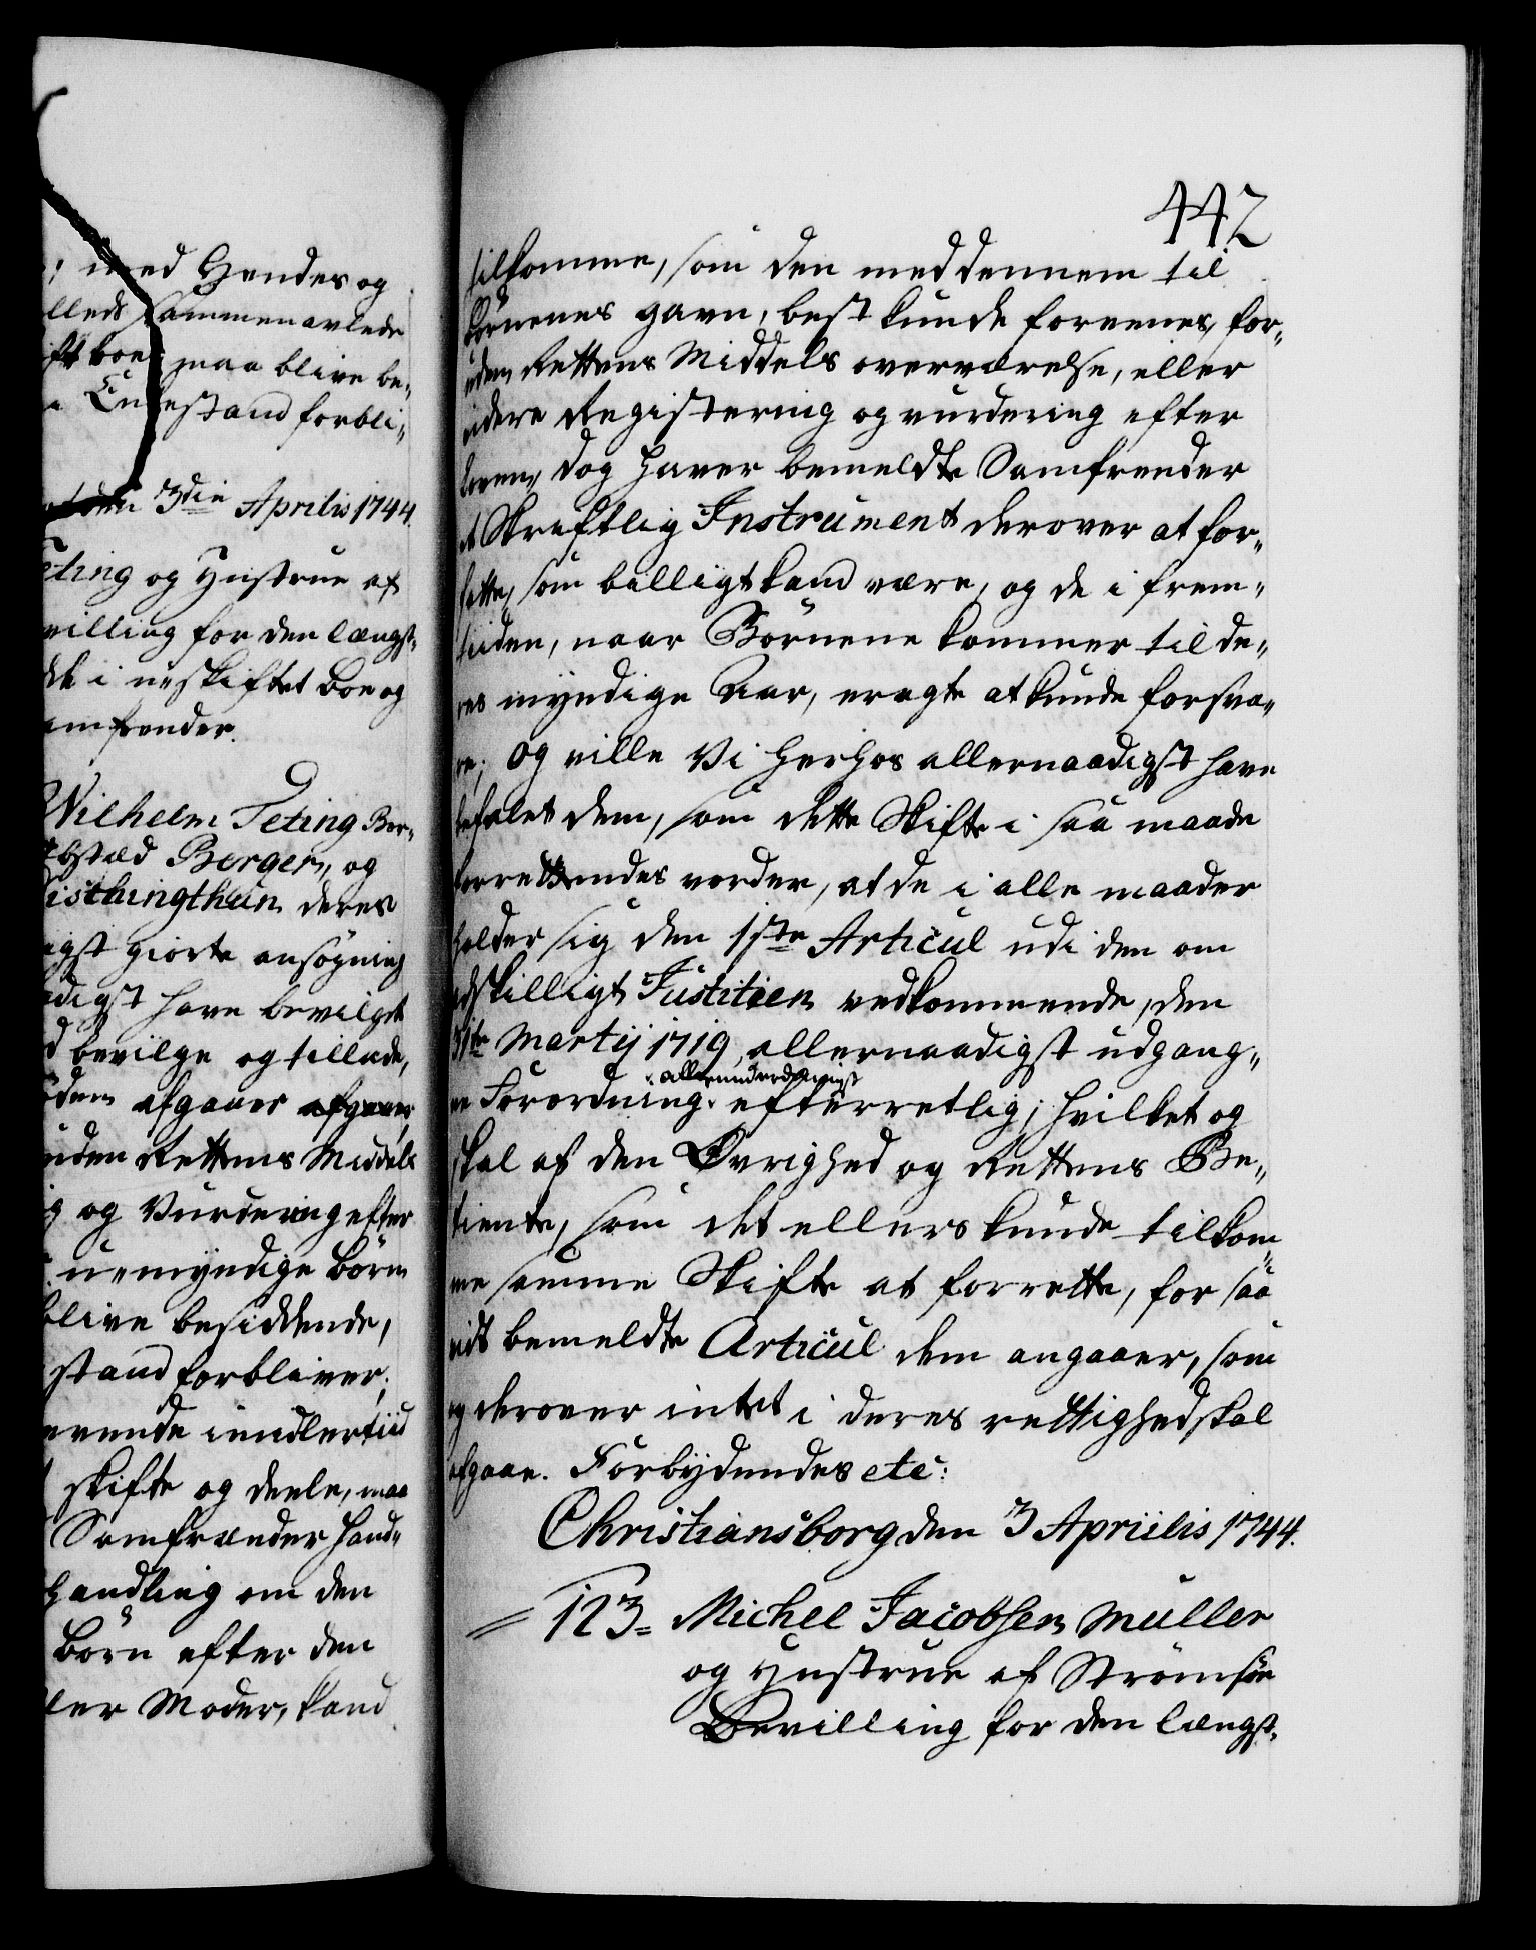 med Hendes og
sammenavlede
boe maa blive be-
Enkestand forbli-
den 3die Aprilis 1744.
og Hustrue af
for den længst-
i u-skiftet boe og
Wilhelm Teting Bor-
Bergen, og
deres
giorte ansøgning
have bevilget
bevilge og tillade,
afgaaer afgaaer
uden Rettens Middels
og Vurdering efter
u-myndige børn
blive besiddende,
stand forbliver;
imidlertiid
skifte og deele, maa
Samfrænder hand-
handling om den
børn efter den
Moder, kand
442
tilkomme, som den med dennem til
Børnenes gavn, best kunde foreenes, for-
uden Rettens Middels overværelse, eller
videre Registering og vurdering efter
Loven, dog haver bemeldte Samfrender
et Skriftlig Instrument derover at for-
fatte, som billigt kand være, og de i frem-
tiiden, naar Børnene kommer til de-
res myndige Aar, eragte at kunde forsva-
re; og ville Vi herhos allernaadigst have
befalet dem, som dette Skifte i saa maade
forrettendes vorder, at de i alle maader
holder sig den 1ste Articul udi den om
adskilligt Justitien vedkommende, den
31te Martij 1719, allernaadigst udgang-
ne Forordning allerunderdanigst efterretlig; hvilket og
skal af den Øvrighed og Rettens Be-
tiente, som det ellers kunde tilkom-
me samme Skifte at forrette, for saa
vidt bemeldte Articul dem angaaer, som
og derover intet i deres rettighed skal
afgaae. Forbydendes etc:
Christiansborg den 3 Apriilis 1744.
123. Michel Jacobsen Müller
og Hustrue af Strømsøe
Bevilling for den længst-